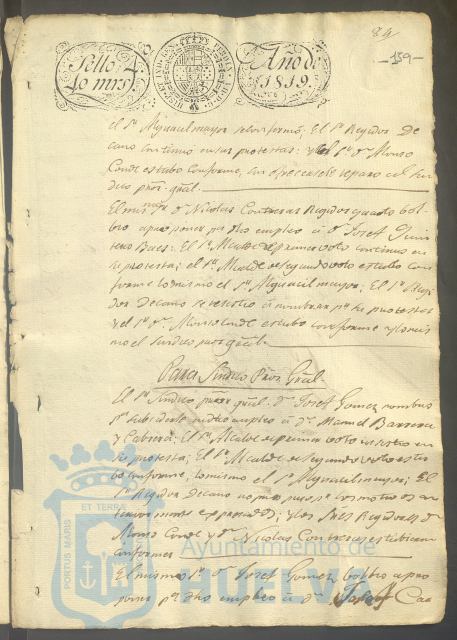 84
-159-
Sello 4.
40 mrs.
HISPANIARUM
Año de
1819.
el Sr. Alguacil mayor se conformó; El Sr. Regidor De
cano continuó en sus protestas; y el Sr. Dn. Alonso
Conde estubo conforme, sin ofrecersele reparo al Sin
dico pror. gral.
El mismo Sr. Dn. Nicolas Contreras Regidor quarto bol
bió a proponer pa. dho empleo a Dn. Josef Quin
tero Baes: El Sr. Alcalde de primer voto continuó en
su protesta; el Sr. Alcalde de segundo voto estubo con
forme lo mismo el Sr. Alguacil mayor; El Sr. Regi
dor Decano se resistió a nombrar pr. su protesta
y el Sr. Dn. Alonso Conde estubo conforme y lo mis
mo el Sindico pror. gral.
Para Sindico Pror. Gral.
El Sr. Sindico pror. gral. Dn. Josef Gomez nombró
pa. subcederle en dho empleo a Dn. Manuel Barrera
y Cabrera; El Sr. Alcalde de primer voto insistió en
su protesta; El Sr. Alcalde de segundo voto estu
bo conforme, lo mismo el Sr. Alguacil mayor; El
Sr. Regidor Decano no por los motivos an
teriormente expresados; y los Sres. Regidores Dn.
Alonso Conde y Dn. Nicolas Contreras estubieron
conformes
El mismo Sr. Dn. Josef Gomez bolbió a pro
poner pa. dho empleo a Dn. Josef Caa
PORTUS MARIS
ET TERRAE
Ayuntamiento de
HUELVA